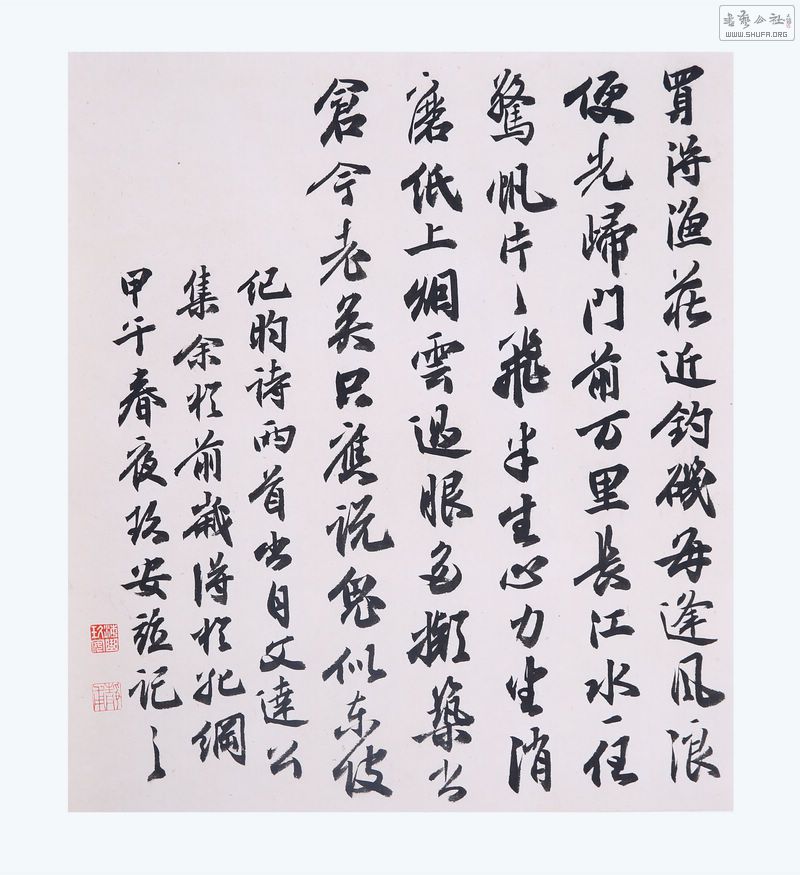 買得漁莊近釣磯每逢風浪
便先歸門前万里長江水一任
驚帆片〻飛半生心力坐消
磨紙上烟雲過眼多擬築書
倉今老矣只應說鬼似東坡
紀昀詩兩首出自文達公
集余於前歲得於孔網
甲午春夜玖安並記之
書藝公社
WWW.SHUFA.ORG